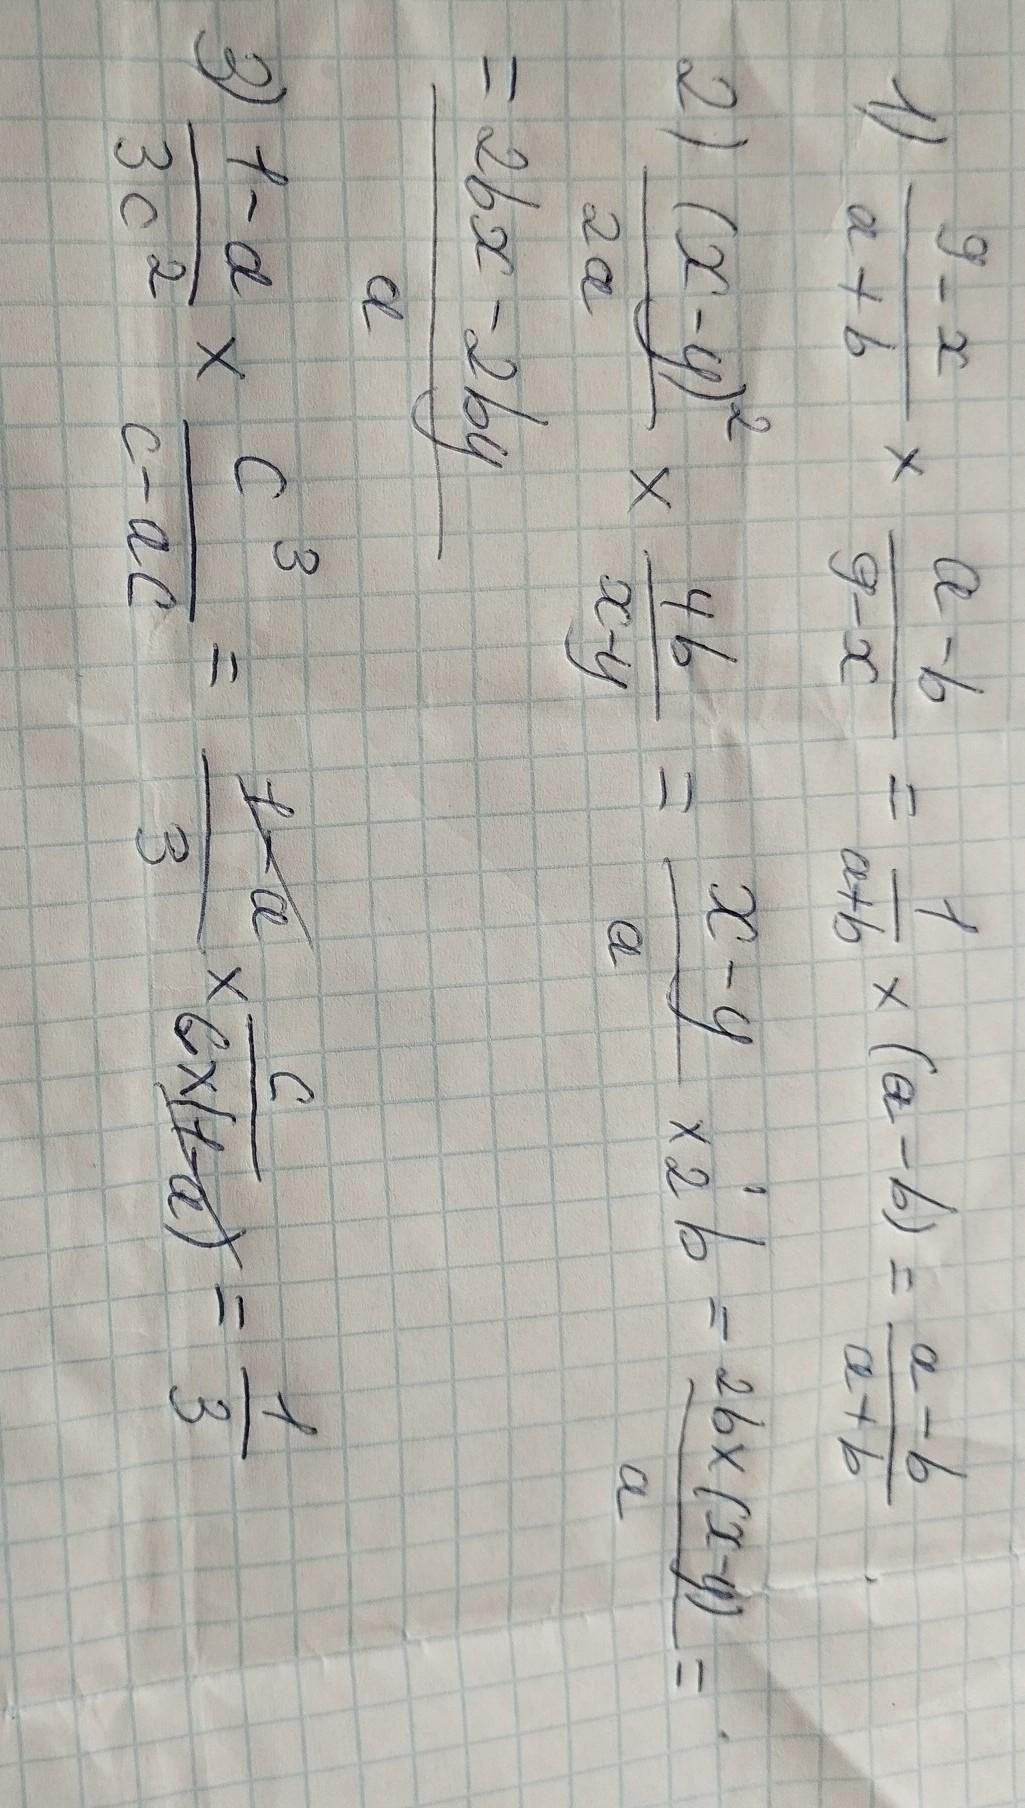 1) (9-x)/(a+b) × (a-b)/(9-x) = 1/(a+b) × (a-b) = (a-b)/(a+b)
2) (x-y)²/2a × 4b/(x-y) = (x-y)/a × 2b = 2b×(x-y)/a =
= (2bx-2by)/a
3) (1-a)/3c² × c³/(c-ac) = (1-a)/3 × c/(c×(1-a)) = 1/3